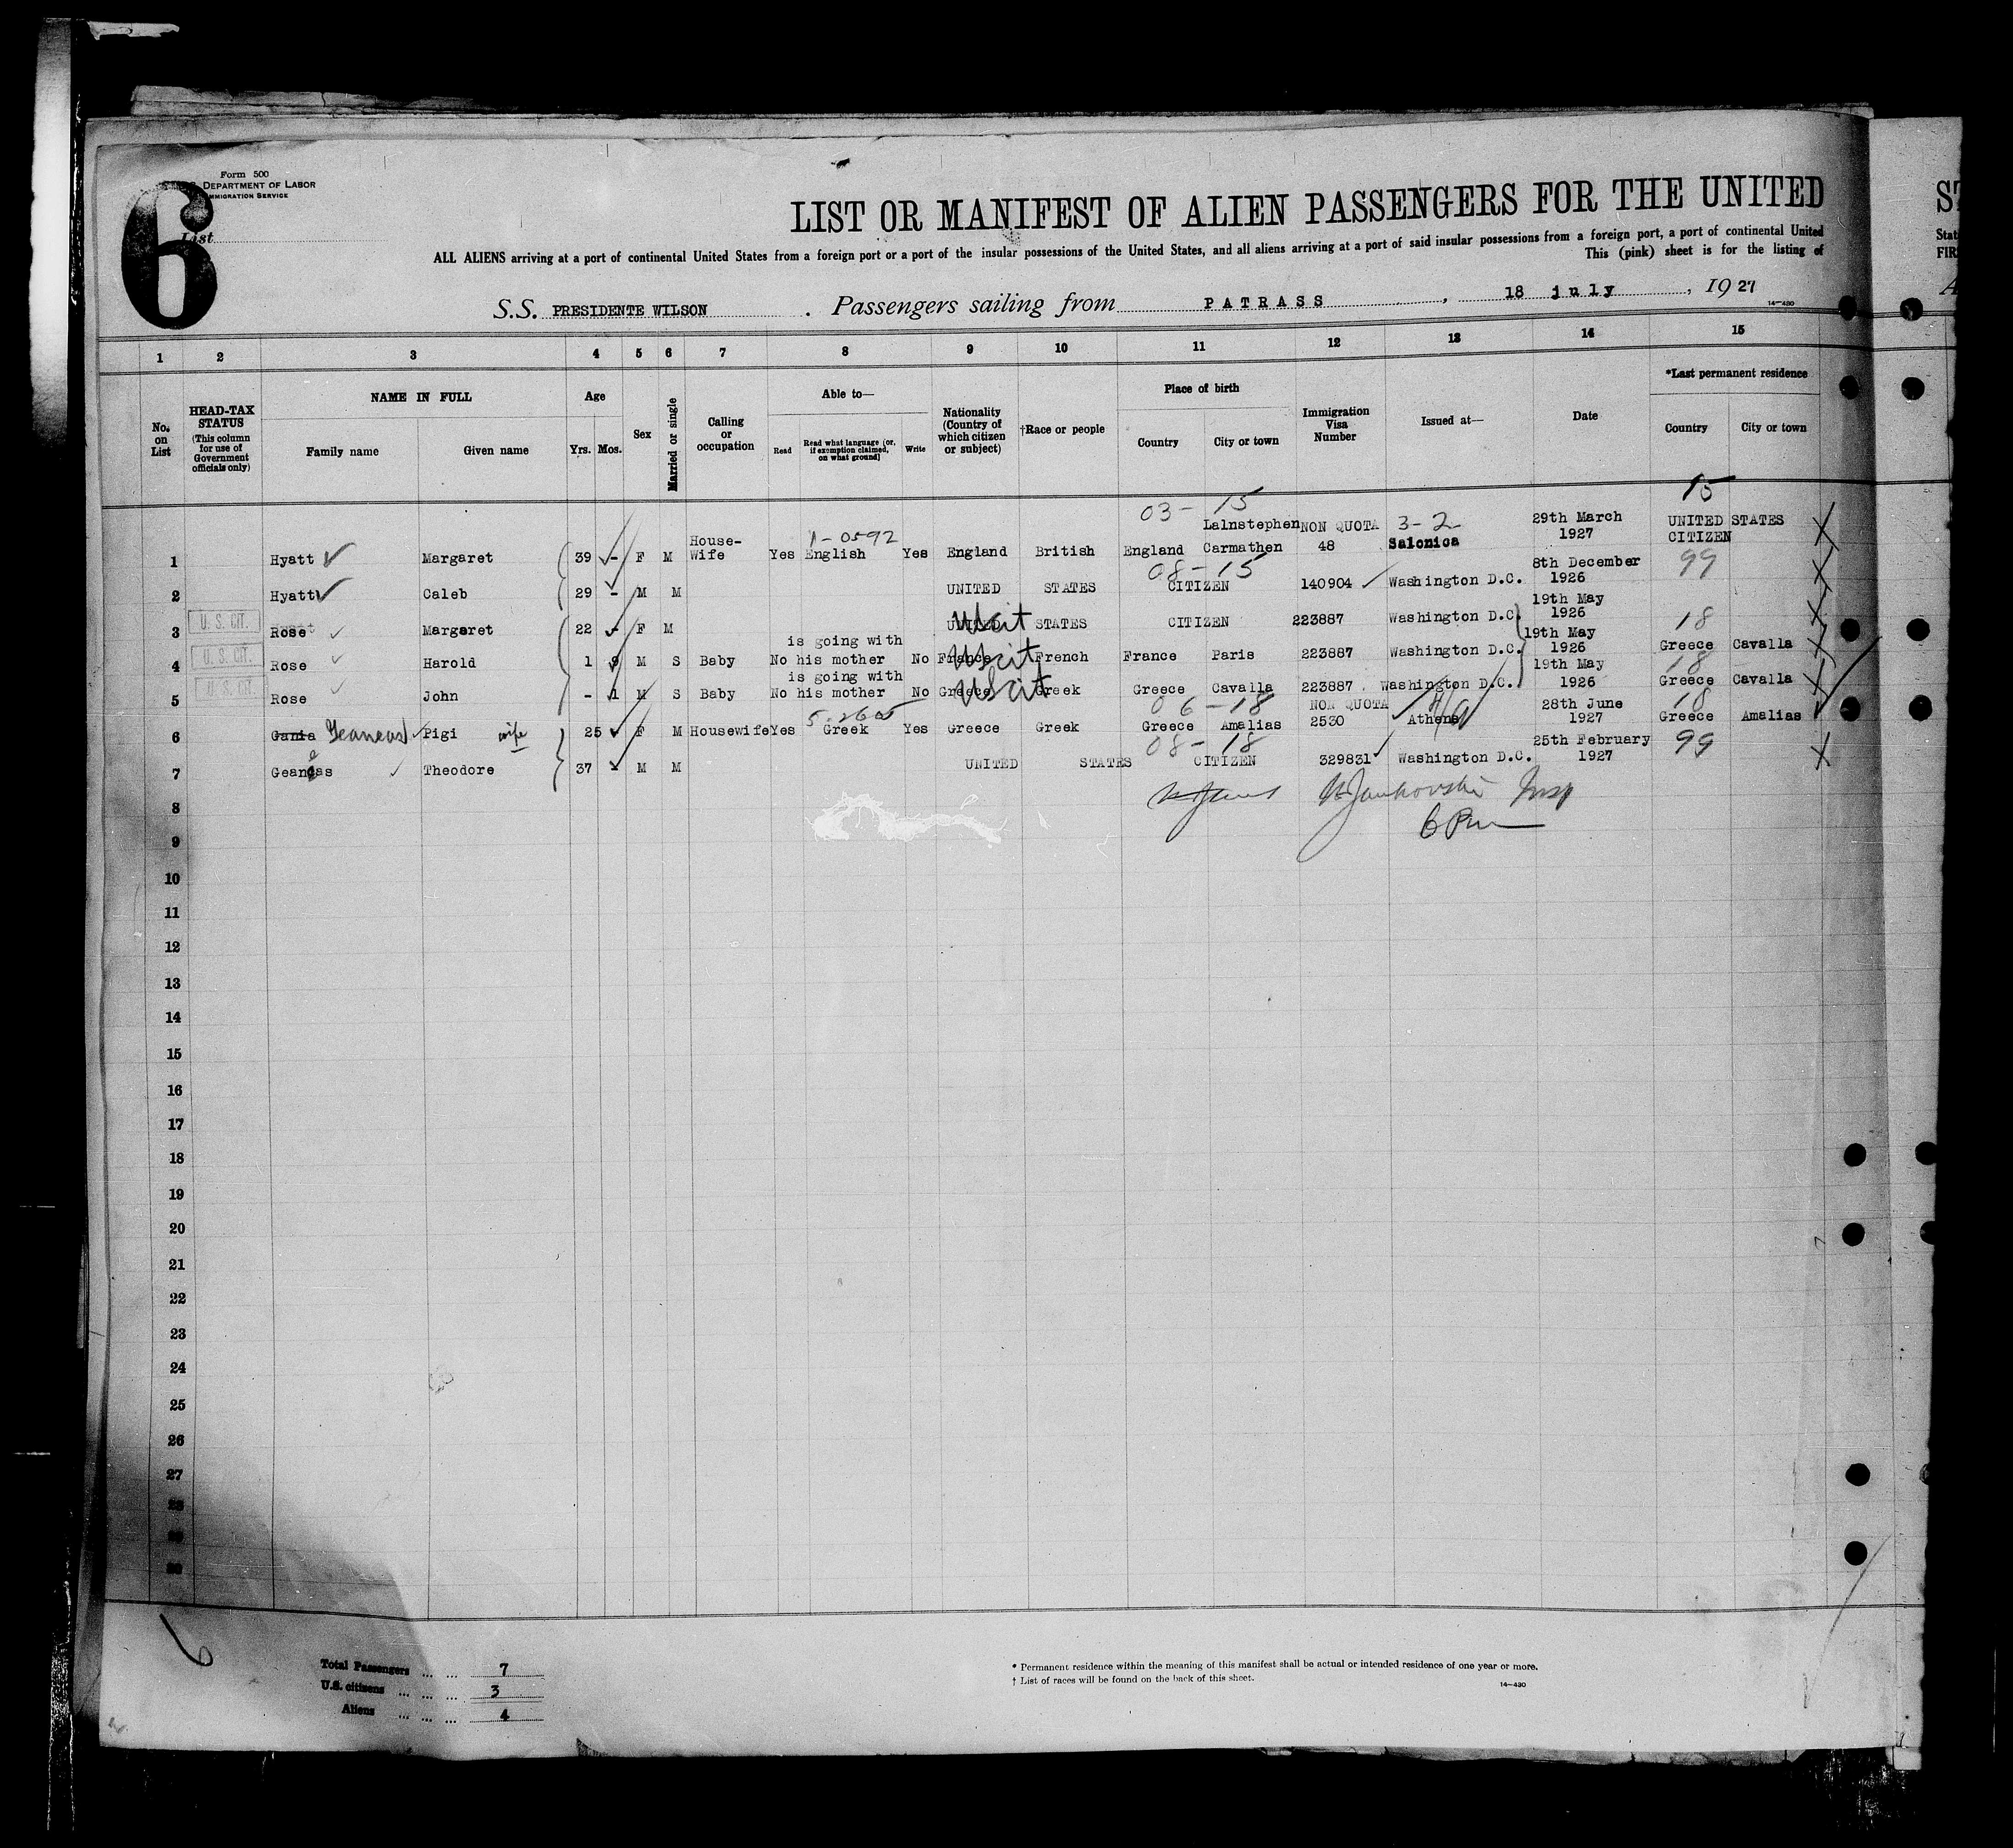 Form 500
DEPARTMENT OF LABOR
IMMIGRATION SERVICE
6
List
LIST OR MANIFEST OF ALIEN PASSENGERS FOR THE UNITED
ALL ALIENS arriving at a port of continental United States from a foreign port or a port of the insular possessions of the United States, and all aliens arriving at a port of said insular possessions from a foreign port, a port of continental United
This (pink) sheet is for the listing of
S.S. PRESIDENTE WILSON . Passengers sailing from PATRASS , 18 july , 1927
14—430
1 2 3 4 5 6 7 8 9 10 11 12 13 14 15
No. on List
HEAD-TAX STATUS (This column for use of Government officials only)
NAME IN FULL
Family name Given name
Age
Yrs. Mos.
Sex
Married or single
Calling or occupation
Able to—
Read
Read what language [or, if exemption claimed, on what ground]
Write
Nationality (Country of which citizen or subject)
†Race or people
Place of birth
Country City or town
Immigration Visa Number
Issued at—
Date
*Last permanent residence
Country City or town
03- 15 15
House- 1-0592 Lalnstephen NON QUOTA 3-2 29th March UNITED STATES
1 Hyatt Margaret 39 - F M Wife Yes English Yes England British England Carmathen 48 Salonica 1927 CITIZEN
08-15 8th December 99
2 Hyatt Caleb 29 - M M UNITED STATES CITIZEN 140904 Washington D.C. 1926
19th May
U. S. CIT. 3 Rose Margeret 22 - F M UNITED US cit STATES CITIZEN 223887 Washington D.C. 1926 18
is going with 19th May
U. S. CIT. 4 Rose Harold 1 9 M S Baby No his mother No France US cit French France Paris 223887 Washington D.C. 1926 Greece Cavalla
is going with 19th May 18
U. S. CIT. 5 Rose John - 1 M S Baby No his mother No Greece US cit Greek Greece Cavalla 223887 Washington D.C. 1926 Greece Cavalla
5-2605 06-18 NON QUOTA 28th June 18
6 Gania Geaneas Pigi wife 25 F M Housewife Yes Greek Yes Greece Greek Greece Amalias 2530 Athens 1927 Greece Amalias
08-18 25th February 99
7 Geaneas Theodore 37 - M M UNITED STATES CITIZEN 329831 Washington D.C. 1927
Insp
8
9
10
11
12
13
14
15
16
17
18
19
20
21
22
23
24
25
26
27
28
29
30
6
Total Passengers ... ... 7
U.S. citizens ... ... ... 3
Aliens ... ... ... 4
* Permanent residence within the meaning of this manifest shall be actual or intended residence of one year or more.
† List of races will be found on the back of this sheet.
14—430